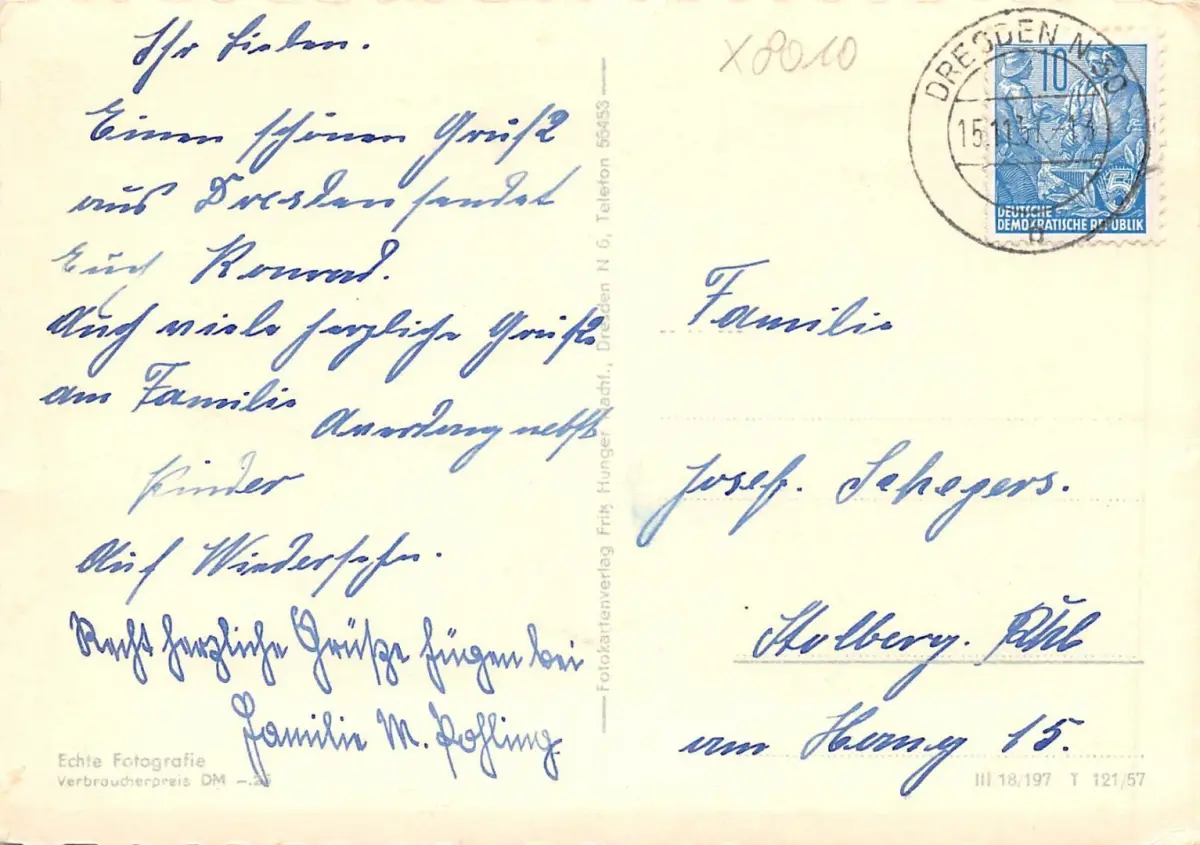 Ihr Lieben.
Einen schönen Gruß
aus Dresden sendet
Euch Konrad.
Auch viele herzliche Grüße
am Familie
nebst
Kinder
Auf Wiedersehn.
Recht herzliche Grüße fügen bei
Familie M. Pohling.
Echte Fotografie
Verbraucherpreis DM –.25
Fotokartenverlag Fritz Hunger Nachf., Dresden N 6, Telefon 56453
X 8010
DRESDEN N 30
15.11.57.-
b
10
5
DEUTSCHE
DEMOKRATISCHE REPUBLIK
Familie
Josef. Schegers.
Stolberg. Rhl
am Hang 15.
III 18/197 T 121/57